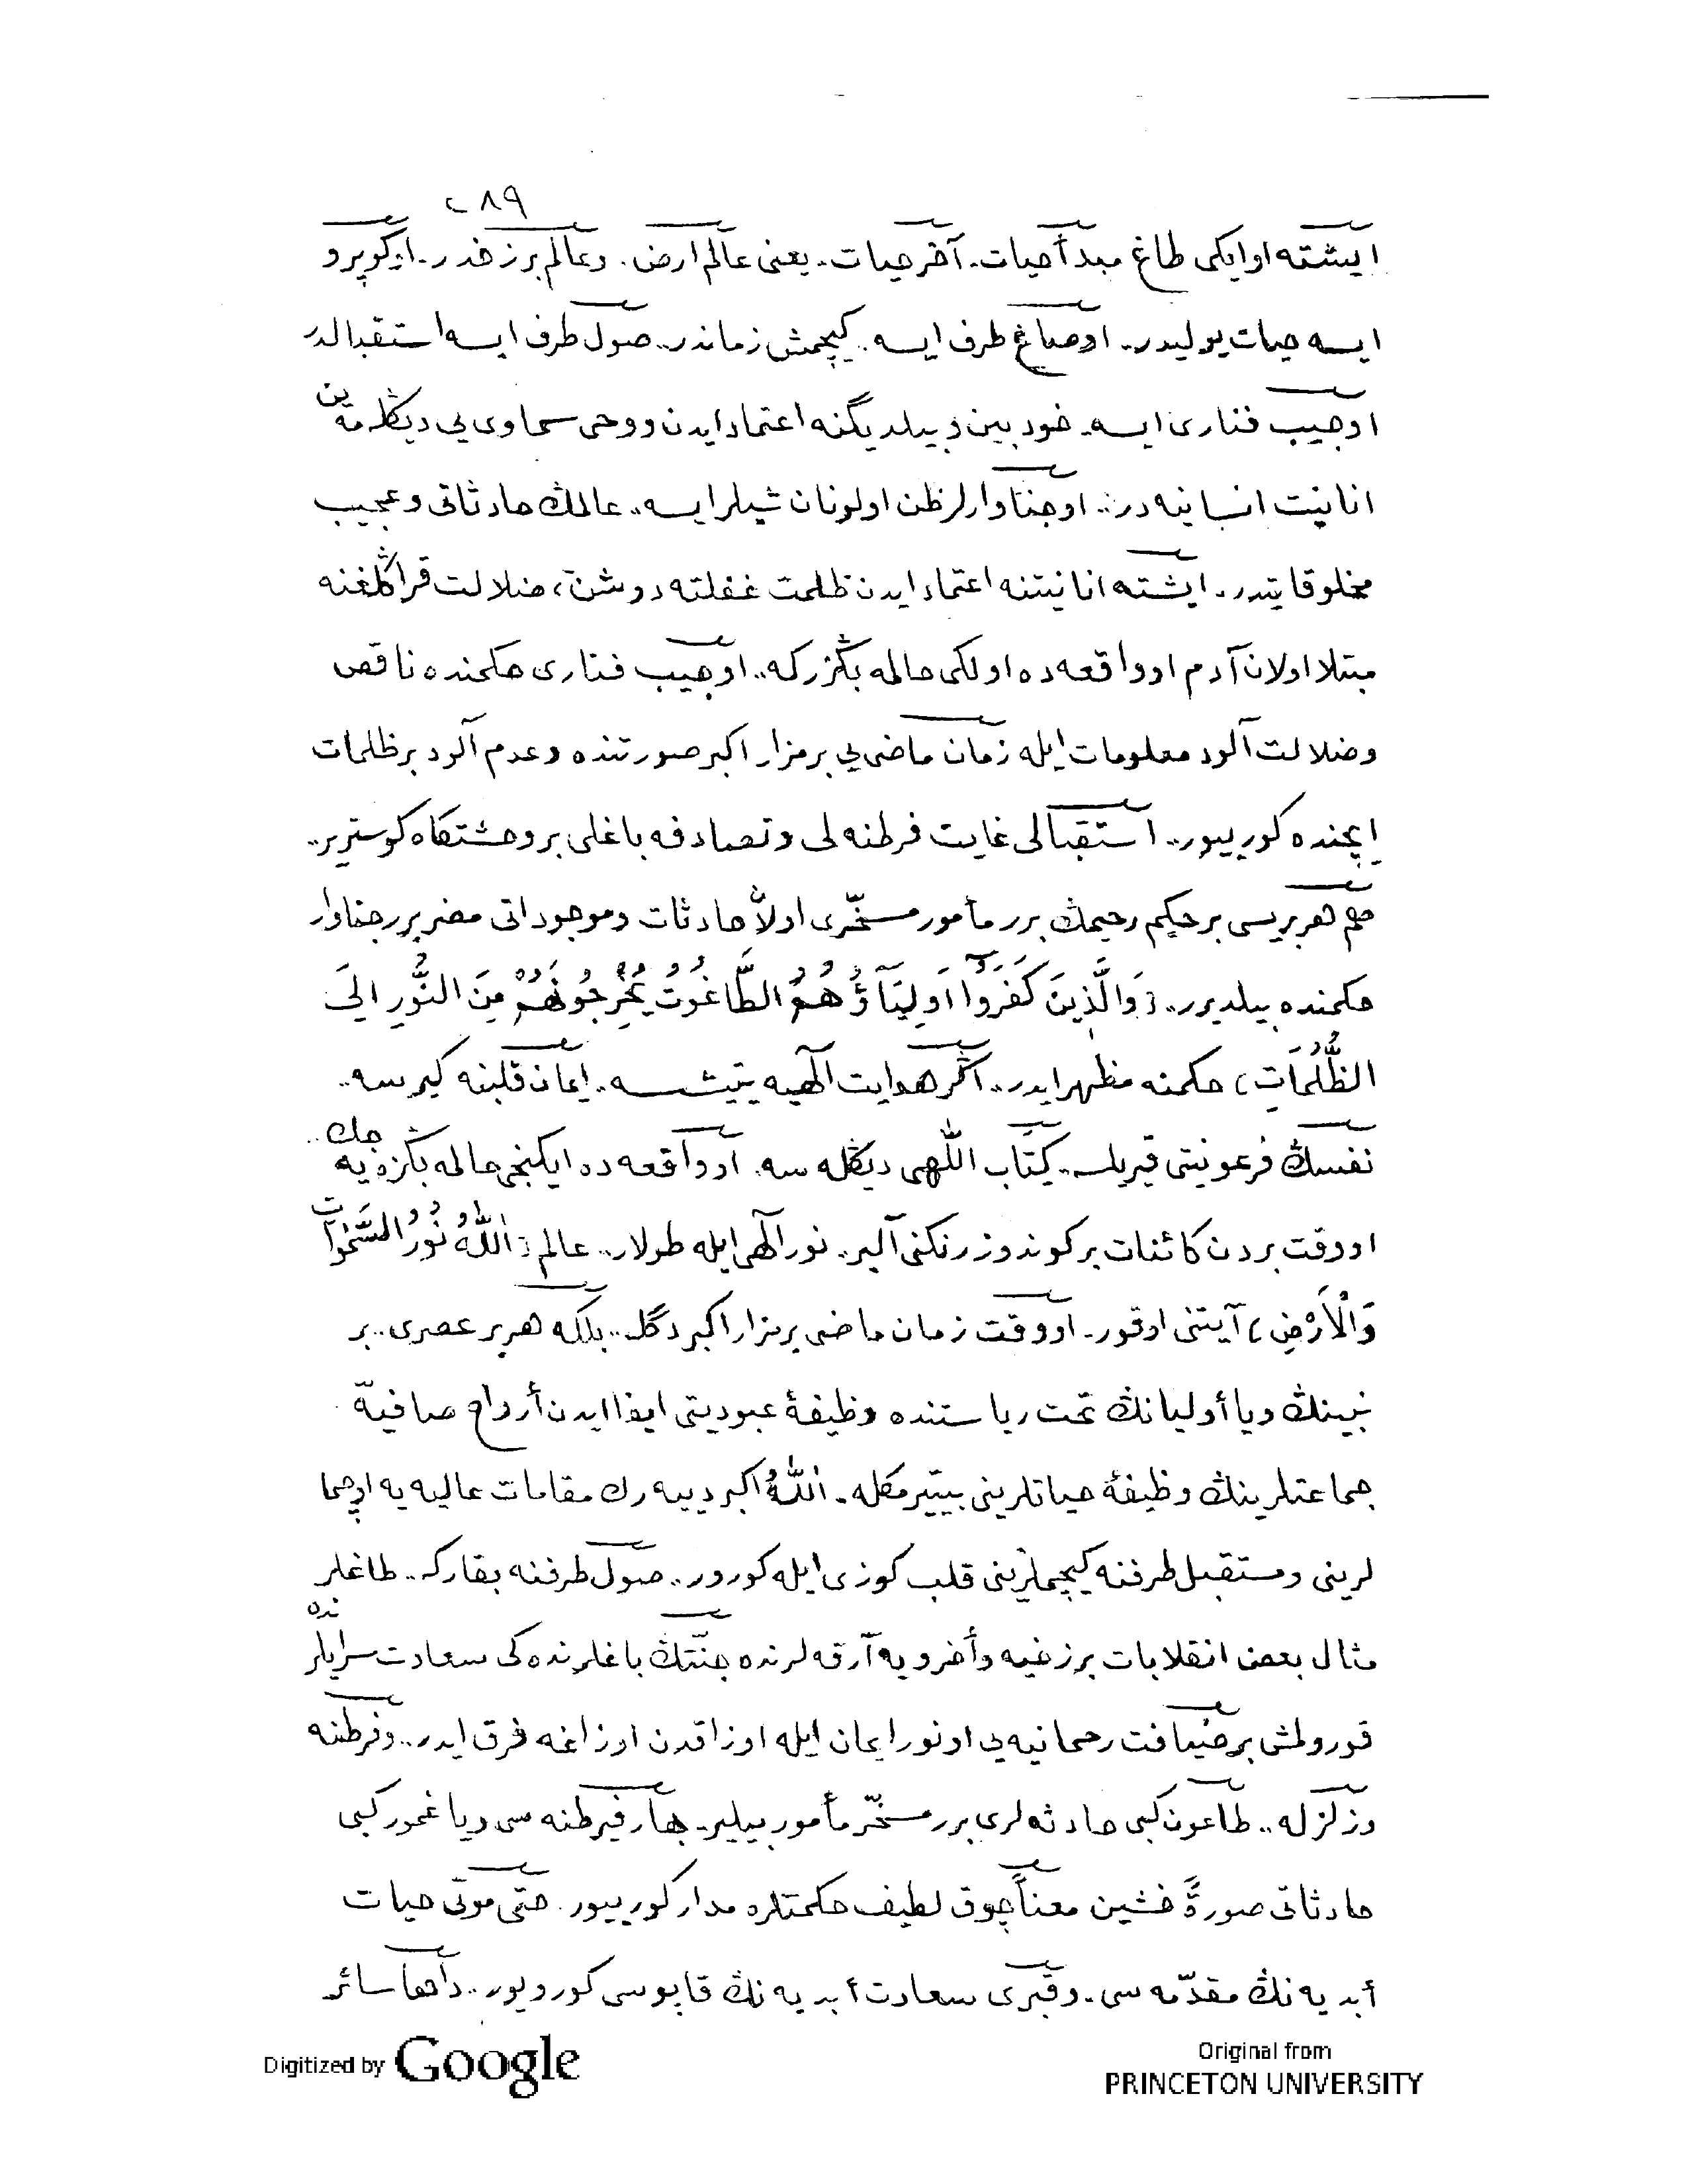 ٢٨٩
ايشته او ايكى طاغ مبدأ حيات. آخر حيات. يعنى عالم ارض. وعالم برزخدر. او كوپرو
ايسه حيات يوليدر.. او صاغ طرف ايسه. كيچمش زماندر.. صول طرف ايسه استقبالدر
او جيب فنارى ايسه. خودبين و بيلديگنه اعتماد ايدن و وحى سماوى يى ديڭله مه ين
انانيت انسانيه در.. او جناوارلر ظن اولونان شيلر ايسه.. عالمڭ حادثاتى و عجيب
مخلوقاتيدر. ايشته انانيتنه اعتماد ايدن ظلمت غفلته دوشن، ضلالت قراڭلغنه
مبتلا اولان آدم او واقعه ده اولكى حالمه بڭزركه.. او جيب فنارى حكمنده ناقص
وضلالت آلود معلومات ايله زمان ماضى يى بر مزار اكبر صورتنده وعدم آلود بر ظلمات
ايچنده كورييور.. استقبالى غايت فرطنه لى وتصادفه باغلى بر وحشتگاه كوستريز..
هم هر بريسى بر حكيم رحيمڭ برر مأمور مسخّرى اولاڭ حادثات وموجوداتى مضر برر جناوار
حكمنده بيلديرر.. ﴿وَالَّذِينَ كَفَرُوٓا اَوْلِيَٓاؤُهُمُ الطَّاغُوتُ يُخْرِجُونَهُمْ مِنَ النُّورِ اِلَىَ
الظُّلُمَاتِ﴾ حكمنه مظهر ايدر.. اڭر هدايت آلهيه يتيشسه.. ايمان قلبنه كيرسه..
نفسڭ فرعونيتى قيريلسه. كتاب اللهى ديڭله سه. او واقعه ده ايكنجى حالمه بڭزه يه جك..
او وقت بردن كائنات بر كوندوز رنكنى آلير. نور آلهى ايله طولار.. عالم ﴿اَللّٰهُ نُورُ السَّمٰوَاتِ
وَالْاَرْضِ﴾ آيتنى اوقور. او وقت زمان ماضى بر مزار اكبر دگل.. بلكه هر بر عصرى.. بر
نبينڭ ويا أوليانڭ تحت رياستنده وظيفۀ عبوديتى ايفا ايدن أرواح صافيه
جماعتلرينڭ وظيفۀ حياتلرينى بيتيرمكله. اَللّٰهُ اكبر دييه رك مقامات عاليه يه اوچما
لرينى ومستقبل طرفنه كيچمارينى قلب كوزى ايله كورور.. صول طرفنه بقاركه.. طاغلر
مثال بعض انقلابات برزخيه وأخرويه آرقه لرنده جنّتڭ باغلرنده كى سعادت سرايلرنده
قورولمش بر ضيافت رحمانيه يى او نور ايمان ايله اوزاقدن اوزاغه فرق ايدر.. وفرطنه
وزلزله.. طاعون كبى حادثه لرى برر مسخّر مأمور بيلير. بهار فيرطنه سى ويا غمور كبى
حادثاتى صورةً خشين معناً چوق لطيف حكمتلره مدار كورييور. حتّى موتى حيات
أبديه نڭ مقدّمه سى. وقبرى سعادت أبديه نڭ قاپوسى كورويور.. داها سائر
Digitized by Google
Original from
PRINCETON UNIVERSITY